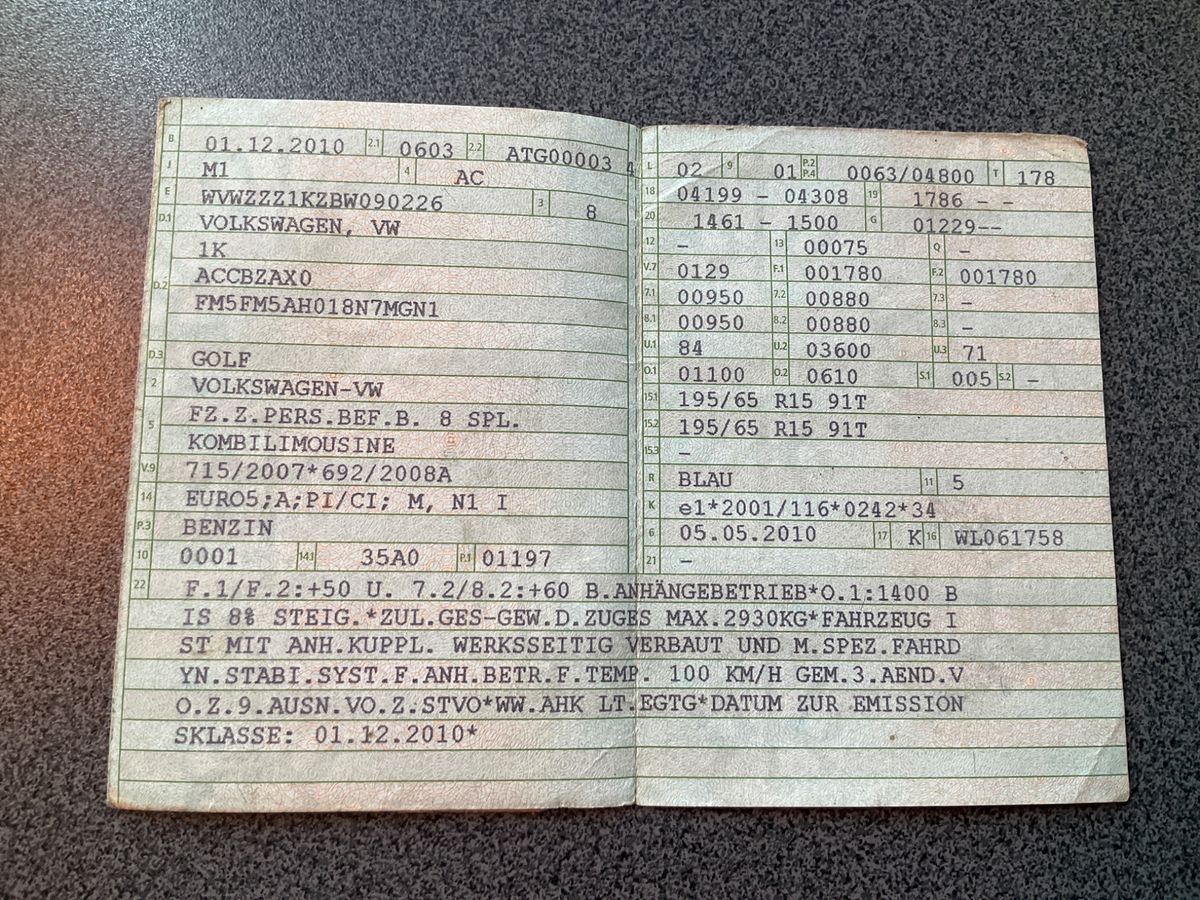 B 01.12.2010 2.1 0603 2.2 ATG00003 4
J M1 4 AC
E WVWZZZ1KZBW090226 3 8
D.1 VOLKSWAGEN, VW
1K
D.2 ACCBZAX0
FM5FM5AH018N7MGN1
D.3 GOLF
2 VOLKSWAGEN-VW
5 FZ.Z.PERS.BEF.B. 8 SPL.
KOMBILIMOUSINE
V.9 715/2007*692/2008A
14 EURO5;A;PI/CI; M, N1 I
P.3 BENZIN
10 0001 14.1 35A0 P.1 01197
L 02 9 01 P.2 P.4 0063/04800 T 178
18 04199 - 04308 19 1786 - -
20 1461 - 1500 G 01229--
12 - 13 00075 Q -
V.7 0129 F.1 001780 F.2 001780
7.1 00950 7.2 00880 7.3 -
8.1 00950 8.2 00880 8.3 -
U.1 84 U.2 03600 U.3 71
O.1 01100 O.2 0610 S.1 005 S.2 -
15.1 195/65 R15 91T
15.2 195/65 R15 91T
15.3 -
R BLAU 11 5
K e1*2001/116*0242*34
6 05.05.2010 17 K 16 WL061758
21 -
22 F.1/F.2:+50 U. 7.2/8.2:+60 B.ANHÄNGEBETRIEB*O.1:1400 B
IS 8% STEIG.*ZUL.GES-GEW.D.ZUGES MAX.2930KG*FAHRZEUG I
ST MIT ANH.KUPPL. WERKSSEITIG VERBAUT UND M.SPEZ.FAHRD
YN.STABI.SYST.F.ANH.BETR.F.TEMP. 100 KM/H GEM.3.AEND.V
O.Z.9.AUSN.VO.Z.STVO*WW.AHK LT.EGTG*DATUM ZUR EMISSION
SKLASSE: 01.12.2010*